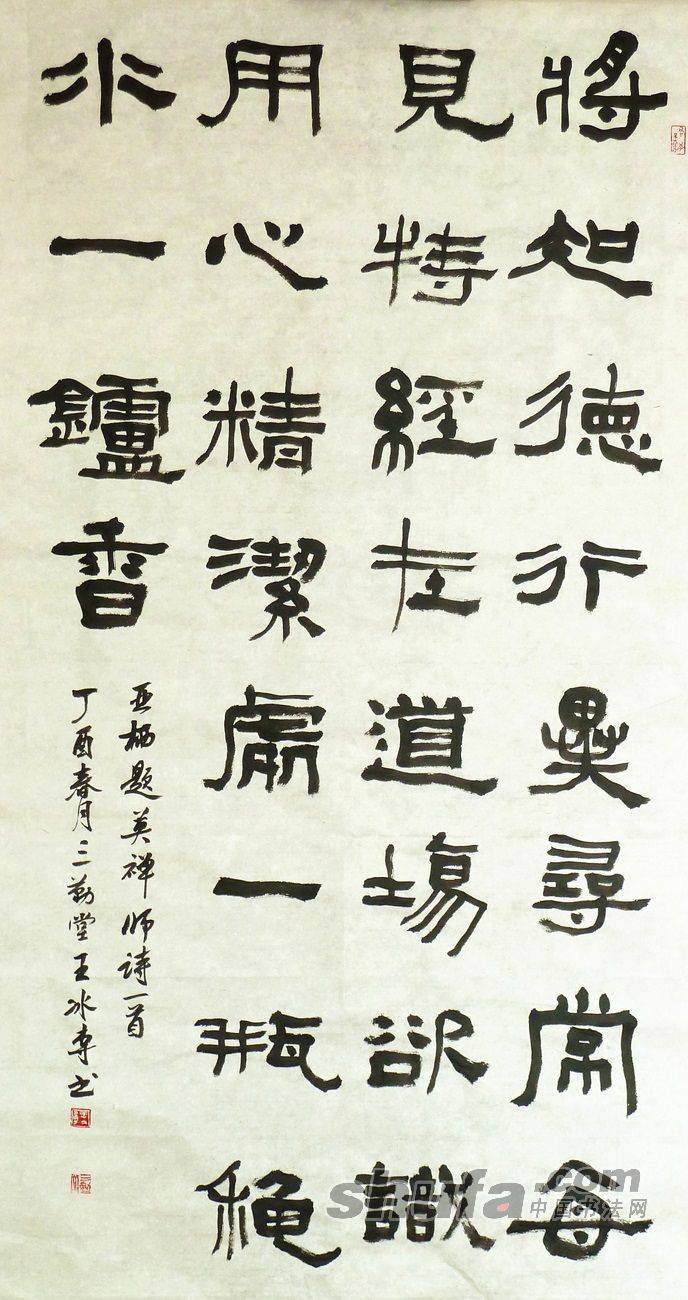 將知德行異尋常每
見持經在道場欲識
用心精潔處一瓶穐
水一鑪香
亚栖題英禅师詩一首
丁酉春月三勤堂王冰专书
shufa.com
中国书法网